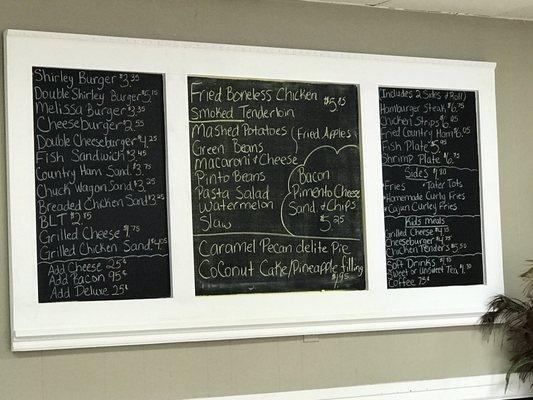 Shirley Burger $3.35
Double Shirley Burger $5.15
Melissa Burger $3.35
Cheeseburger $2.55
Double Cheeseburger $4.25
Fish Sandwich $3.45
Country Ham Sand. $3.75
Chuck Wagon Sand. $3.25
Breaded Chicken Sand $3.25
BLT $2.85
Grilled Cheese $1.75
Grilled Chicken Sand $4.05
Add Cheese 25¢
Add Bacon 95¢
Add Deluxe 25¢
Fried Boneless Chicken $5.85
Smoked Tenderloin
Mashed Potatoes
Green Beans
Macaroni + Cheese
Pinto Beans
Pasta Salad
Watermelon
Slaw
Fried Apples
Bacon
Pimento Cheese
Sand. + Chips
$5.25
Caramel Pecan delite Pie
Coconut Cake/Pineapple filling
$1.95
Includes 2 Sides + Roll)
Hamburger Steak $6.75
Chicken Strips $6.05
Fried Country Ham $6.05
Fish Plate $5.95
Shrimp Plate $6.75
Sides $1.80
Fries • Tater Tots
Homemade Curly Fries
Cajun Curley Fries
Kids meals
Grilled Cheese $4.15
Cheeseburger $4.75
Chicken Tenders $5.50
Soft Drinks $1.15
Sweet or Unsweet Tea $1.30
Coffee 75¢